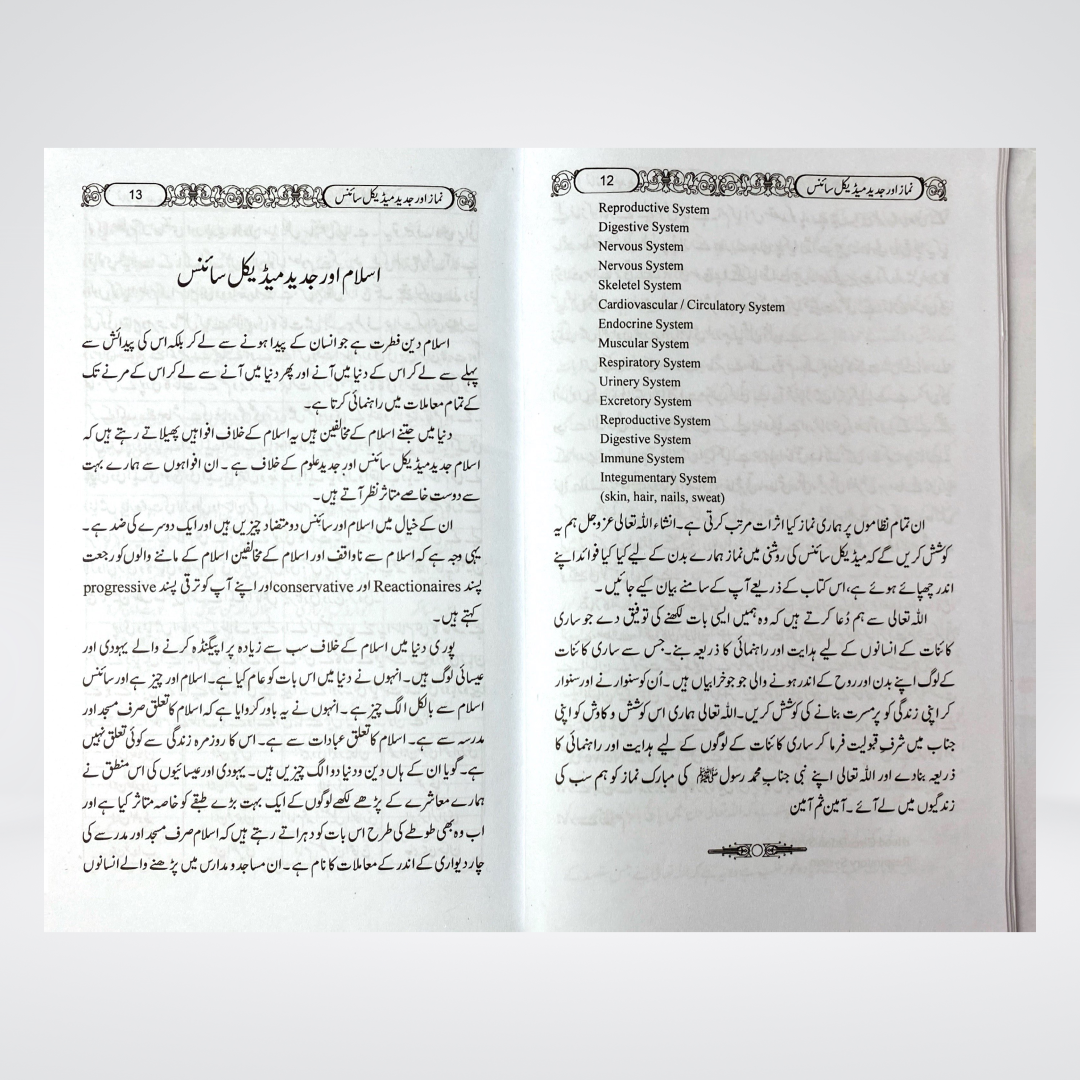 نماز اور جدید میڈیکل سائنس 12
Reproductive System
Digestive System
Nervous System
Nervous System
Skeletel System
Cardiovascular / Circulatory System
Endocrine System
Muscular System
Respiratory System
Urinery System
Excretory System
Reproductive System
Digestive System
Immune System
Integumentary System
(skin, hair, nails, sweat)
ان تمام نظاموں پر ہماری نماز کیا اثرات مرتب کرتی ہے۔ انشاء اللہ تعالیٰ عزوجل ہم یہ
کوشش کریں گے کہ میڈیکل سائنس کی روشنی میں نماز ہمارے بدن کے لیے کیا کیا فوائد اپنے
اندر چھپائے ہوئے ہے، اس کتاب کے ذریعے آپ کے سامنے بیان کیے جائیں۔
اللہ تعالیٰ سے ہم دُعا کرتے ہیں کہ وہ ہمیں ایسی بات لکھنے کی توفیق دے جو ساری
کائنات کے انسانوں کے لیے ہدایت اور راہنمائی کا ذریعہ بنے۔ جس سے ساری کائنات
کے لوگ اپنے بدن اور روح کے اندر ہونے والی جو جو خرابیاں ہیں۔ اُن کو سنوارنے اور سنوار
کر اپنی زندگی کو پرمسرت بنانے کی کوشش کریں۔ اللہ تعالیٰ ہماری اس کوشش و کاوش کو اپنی
جناب میں شرفِ قبولیت فرما کر ساری کائنات کے لوگوں کے لیے ہدایت اور راہنمائی کا
ذریعہ بنادے اور اللہ تعالیٰ اپنے نبی جناب محمد رسول ﷺ کی مبارک نماز کو ہم سب کی
زندگیوں میں لے آئے۔ آمین ثم آمین
نماز اور جدید میڈیکل سائنس 13
اسلام اور جدید میڈیکل سائنس
اسلام دین فطرت ہے جو انسان کے پیدا ہونے سے لے کر بلکہ اس کی پیدائش سے
پہلے سے لے کر اس کے دنیا میں آنے اور پھر دنیا میں آنے سے لے کر اس کے مرنے تک
کے تمام معاملات میں راہنمائی کرتا ہے۔
دنیا میں جتنے اسلام کے مخالفین ہیں یہ اسلام کے خلاف افواہیں پھیلاتے رہتے ہیں کہ
اسلام جدید میڈیکل سائنس اور جدید علوم کے خلاف ہے۔ ان افواہوں سے ہمارے بہت
سے دوست خاصے متاثر نظر آتے ہیں۔
ان کے خیال میں اسلام اور سائنس دو متضاد چیزیں ہیں اور ایک دوسرے کی ضد ہے۔
یہی وجہ ہے کہ اسلام سے ناواقف اور اسلام کے مخالفین اسلام کے ماننے والوں کو رجعت
پسند Reactionaires اور conservative اور اپنے آپ کو ترقی پسند progressive
کہتے ہیں۔
پوری دنیا میں اسلام کے خلاف سب سے زیادہ پراپیگنڈہ کرنے والے یہودی اور
عیسائی لوگ ہیں۔ انہوں نے دنیا میں اس بات کو عام کیا ہے۔ اسلام اور چیز ہے اور سائنس
اسلام سے بالکل الگ چیز ہے۔ انہوں نے یہ باور کروایا ہے کہ اسلام کا تعلق صرف مسجد اور
مدرسہ سے ہے۔ اسلام کا تعلق عبادات سے ہے۔ اس کا روزمرہ زندگی سے کوئی تعلق نہیں
ہے۔ گویا ان کے ہاں دین و دنیا دو الگ چیزیں ہیں۔ یہودی اور عیسائیوں کی اس منطق نے
ہمارے معاشرے کے پڑھے لکھے لوگوں کے ایک بہت بڑے طبقے کو خاصہ متاثر کیا ہے اور
اب وہ بھی طوطے کی طرح اس بات کو دہراتے رہتے ہیں کہ اسلام صرف مسجد اور مدرسے کی
چار دیواری کے اندر کے معاملات کا نام ہے۔ ان مساجد و مدارس میں پڑھنے والے انسانوں